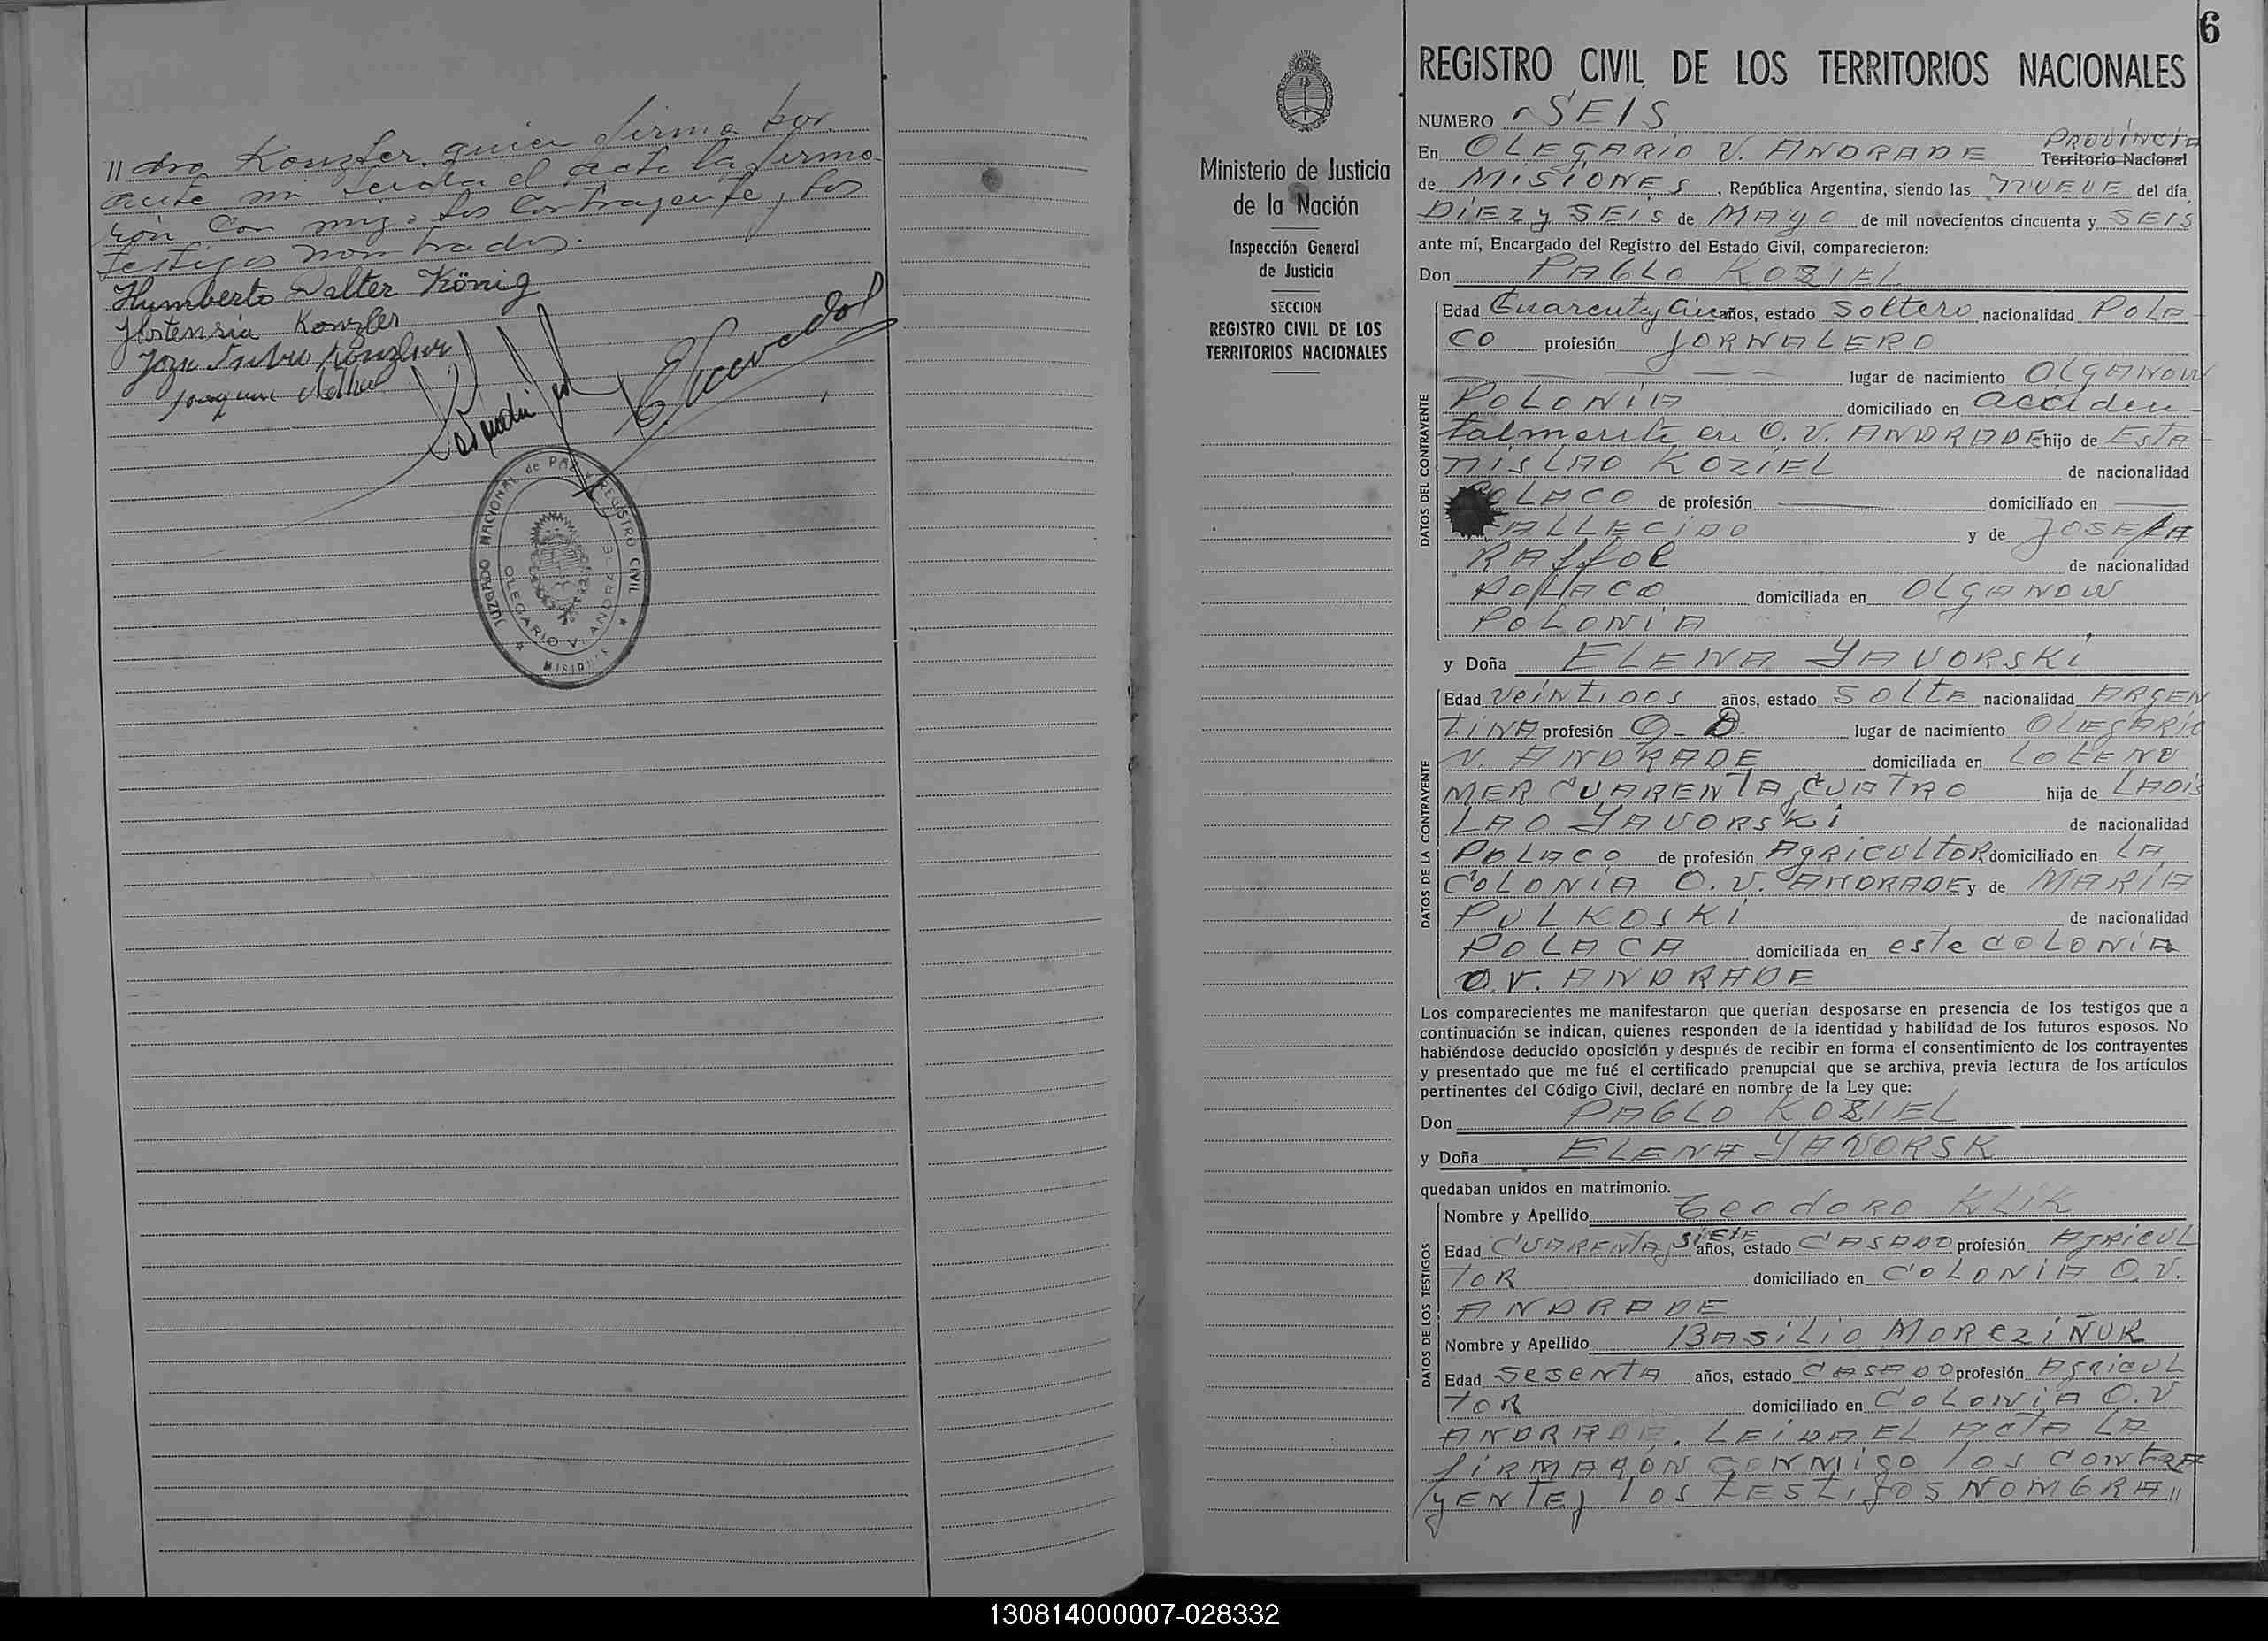 // dro Konzler, quien firma por
ante mi. Leida el acta la firma-
rón con migo los contrayente y los
testigos nombrados.
Humberto Walter König
Hortensia Konzler
Joaquin
JUZGADO NACIONAL de PAZ Y REGISTRO CIVIL
OLEGARIO V. ANDRADE
MISIONES
Ministerio de Justicia
de la Nación
Inspección General
de Justicia
SECCION
REGISTRO CIVIL DE LOS
TERRITORIOS NACIONALES
6
REGISTRO CIVIL DE LOS TERRITORIOS NACIONALES
NUMERO SEIS
PROVINCIA
En OLEGARIO V. ANDRADE Territorio Nacional
de MISIONES, República Argentina, siendo las NUEVE del día
DIEZ y SEIS de MAYO de mil novecientos cincuenta y SEIS
ante mí, Encargado del Registro del Estado Civil, comparecieron:
Don PABLO KOZIEL
DATOS DEL CONTRAYENTE
Edad Cuarenta y Cin años, estado Soltero nacionalidad POLA-
CO profesión JORNALERO
lugar de nacimiento OLGANOW
POLONIA domiciliado en acciden-
talmente en O. V. ANDRADE hijo de ESTA-
NISLAO KOZIEL de nacionalidad
POLACO de profesión domiciliado en
FALLECIDO y de JOSEFA
RAFFOL de nacionalidad
POLACO domiciliada en OLGANOW
POLONIA
y Doña ELENA YAVORSKI
DATOS DE LA CONTRAYENTE
Edad VEINTIDOS años, estado SOLTE nacionalidad ARGEN
TINA profesión Q-D. lugar de nacimiento OLEGARIO
V. ANDRADE domiciliada en LOTE NU
MER CUARENTA y CUATRO hija de LADIS
LAO YAVORSKI de nacionalidad
POLACO de profesión AGRICULTOR domiciliado en LA
COLONIA O. V. ANDRADE y de MARIA
PULKOSKI de nacionalidad
POLACA domiciliada en este COLONIA
O.V. ANDRADE
Los comparecientes me manifestaron que querían desposarse en presencia de los testigos que a
continuación se indican, quienes responden de la identidad y habilidad de los futuros esposos. No
habiéndose deducido oposición y después de recibir en forma el consentimiento de los contrayentes
y presentado que me fué el certificado prenupcial que se archiva, previa lectura de los artículos
pertinentes del Código Civil, declaré en nombre de la Ley que:
Don PABLO KOZIEL
y Doña ELENA YAVORSK
quedaban unidos en matrimonio.
DATOS DE LOS TESTIGOS
Nombre y Apellido Teodoro KLIK
Edad CUARENTA y SIETE años, estado CASADO profesión AGRICUL
TOR domiciliado en COLONIA O.V.
ANDRADE
Nombre y Apellido BASILIO MORCZIÑUK
Edad SESENTA años, estado CASADO profesión AGRICUL
TOR domiciliado en COLONIA O.V
ANDRADE. LEIDA EL ACTA LA
FIRMARON CONMIGO LOS CONTRA
YENTE y LOS TESTIGOS NOMBRA //
130814000007-028332